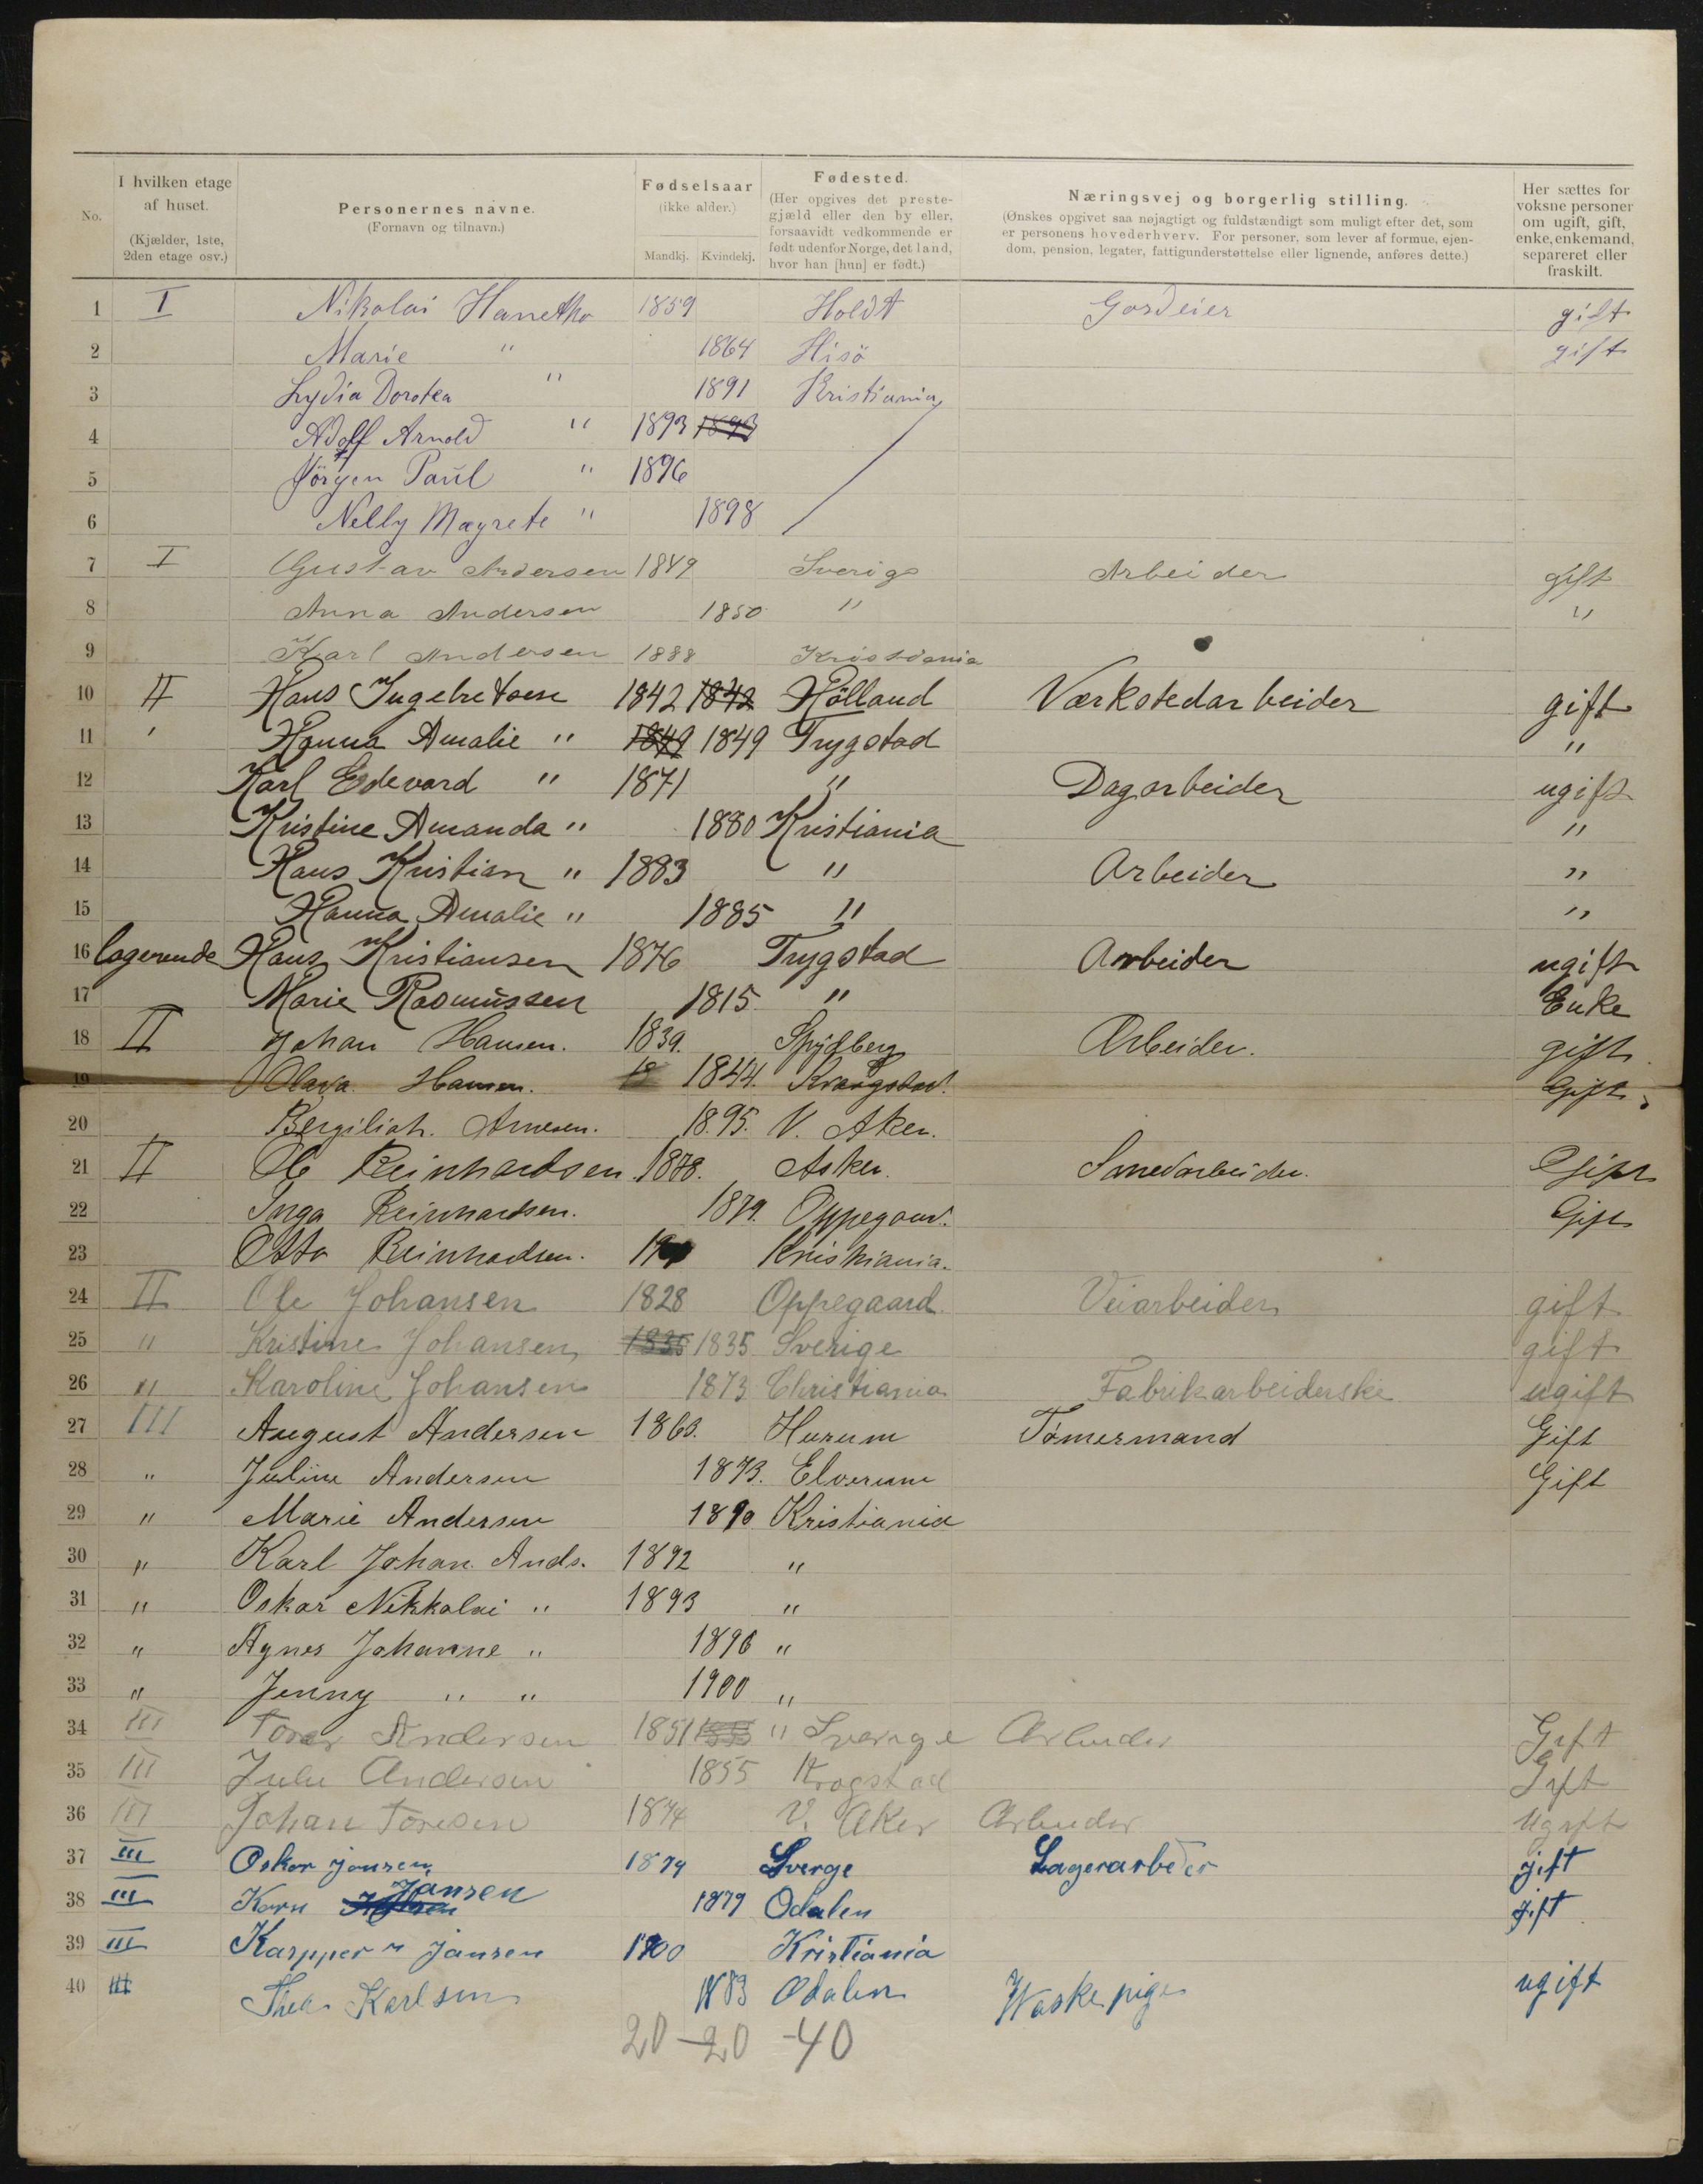 No. I hvilken etage af huset. (Kjælder, 1ste, 2den etage osv.) Personernes navne. (Fornavn og tilnavn.) Fødselsaar (ikke alder.) Mandkj. Kvindekj. Fødested. (Her opgives det prestegjæld eller den by eller, forsaavidt vedkommende er født udenfor Norge, det land, hvor han [hun] er født.) Næringsvej og borgerlig stilling. (Ønskes opgivet saa nøjagtigt og fuldstændigt som muligt efter det, som er personens hovederhverv. For personer, som lever af formue, ejendom, pension, legater, fattigunderstøttelse eller lignende, anføres dette.) Her sættes for voksne personer om ugift, gift, enke, enkemand, separeret eller fraskilt.
1 I Nikolai Hanetho 1859 Holdt Gordeier gift
2 Marie " 1864 Hisö gift
3 Lydia Dorotea " 1891 Kristiania
4 Adolf Arnold " 1893 1893
5 Jörgen Paul " 1896
6 Nelly Magrete " 1898
7 I Gustav Andersen 1849 Sverige Arbeider gift
8 Anna Andersen 1850 " "
9 Karl Andersen 1888 Kristiania
10 II Hans Ingebretsen 1842 1842 Hölland Værkstedarbeider gift
11 ' Hanna Amalie " 1849 1849 Trygstad "
12 Karl Edevard " 1871 " Dagarbeider ugift
13 Kristine Amanda " 1880 Kristiania "
14 Hans Kristian " 1883 " Arbeider "
15 Hanna Amalie " 1885 " "
16 logerende Hans Kristiansen 1876 Trygstad Arbeider ugift
17 Marie Rasmussen 1815 " Enke
18 II Johan Hansen. 1839. Spydberg Arbeider. gift
19 Olava Hansen. 18 1844. Kraagstad. Gift.
20 Arnesen. 1895. V. Aker.
21 II Ole Reinhardsen 1878. Asker. Smedarbeider. Gift
22 Inga Reinhardsen. 1879. Oppegaard. Gift
23 Otto Reinhardsen. Kristiania.
24 II Ole Johansen 1828 Oppegaard Veiarbeider gift
25 " Kristine Johansen 1835 1835 Sverige gift
26 " Karoline Johansen 1873 Christiania Fabrikarbeiderske ugift
27 III August Andersen 1863. Hurum Tømermand Gift
28 " Juline Andersen 1873. Elverum Gift
29 " Marie Andersen 1890 Kristiania
30 " Karl Johan Ands. 1892 "
31 " Oskar Nikkolai " 1893 "
32 " Agnes Johanne " 1896 "
33 " Jenny " " 1900 "
34 III Tores Andersen 1851 " Sverige Arbeider Gift
35 III Julie Andersen 1855 Krogstad Gift
36 III Johan Toresen 1874 V. Aker Arbeider Ugift
37 III Oskar Jansen 1879 Sverge Lagerarbeder gift
38 III Karn Jansen 1879 Odalen gift
39 III Kaspper Jansen 1900 Kristiania
40 III Thea Karlsen 1883 Odalen Waskepige ugift
20 - 20 - 40